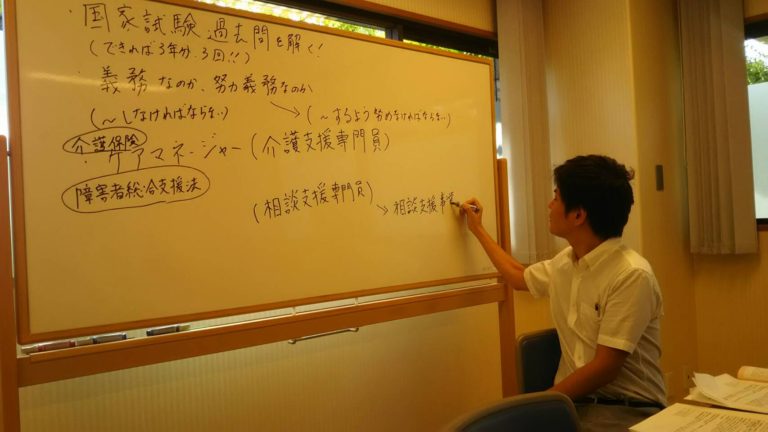 ・国家試験過去問を解く!
(できれば3年分.3回!!)
・義務なのか、努力義務なのか
(~しなければならない) → (~するよう努めなければならない)
介護保険
・ケアマネージャー(介護支援専門員)
障害者総合支援法
(相談支援専門員) → 相談支援事